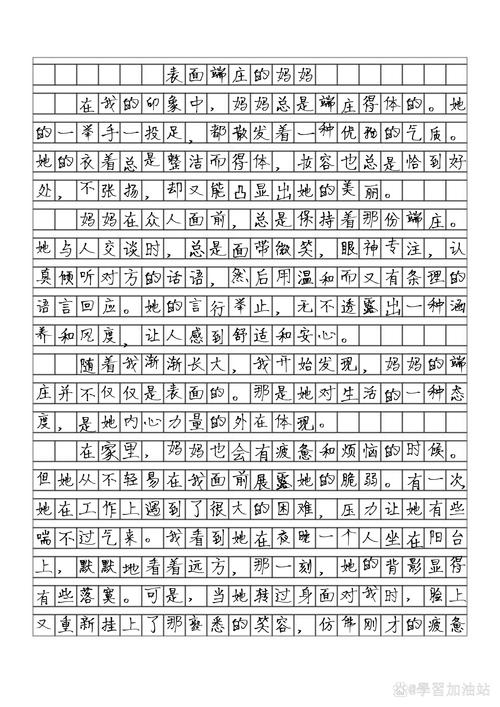 表面端庄的妈妈
在我的印象中，妈妈总是端庄得体的。她
的一举手一投足，都散发着一种优雅的气质。
她的衣着总是整洁而得体，妆容也总是恰到好
处，不张扬，却又能凸显出她的美丽。
妈妈在众人面前，总是保持着那份端庄。
她与人交谈时，总是面带微笑，眼神专注，认
真倾听对方的话语，然后用温和而又有条理的
语言回应。她的言行举止，无不透露出一种涵
养和风度，让人感到舒适和安心。
随着我渐渐长大，我开始发现，妈妈的端
庄并不仅仅是表面的。那是她对生活的一种态
度，是她内心力量的外在体现。
在家里，妈妈也会有疲惫和烦恼的时候。
但她从不轻易在我面前展露她的脆弱。有一次，
她在工作上遇到了很大的困难，压力让她有些
喘不过气来。我看到她在夜晚一个人坐在阳台
上，默默地看着远方，那一刻，她的背影显得
有些落寞。可是，当她转过身面对我时，脸上
又重新挂上了那熟悉的笑容，仿佛刚才的疲惫
@學習加油站